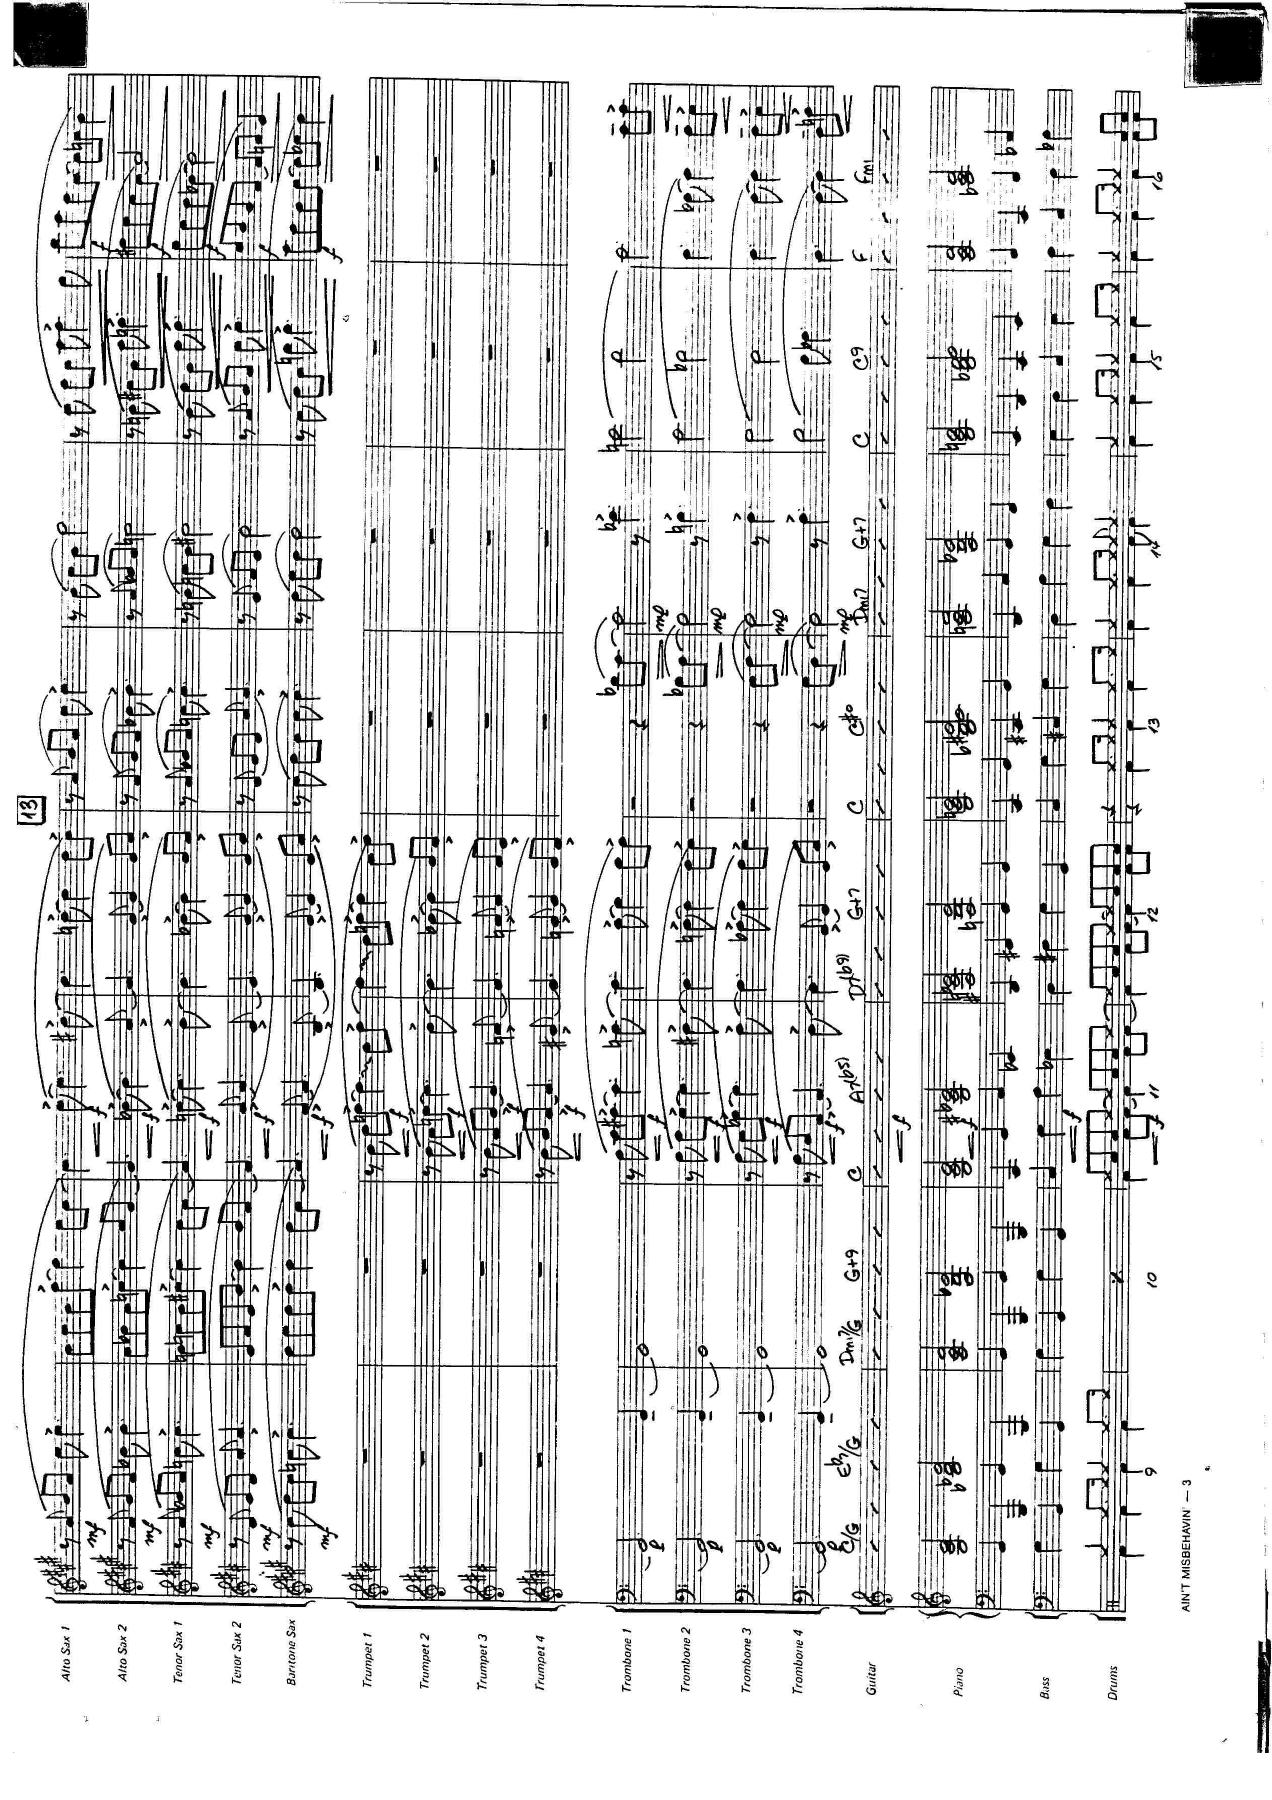 13
Alto Sax 1
mf
f
f
Alto Sax 2
mf
f
f
Tenor Sax 1
mf
f
f
Tenor Sax 2
mf
f
f
Baritone Sax
mf
f
f
Trumpet 1
f
Trumpet 2
f
Trumpet 3
f
Trumpet 4
f
Trombone 1
p
f
mf
Trombone 2
p
f
mf
Trombone 3
p
f
mf
Trombone 4
p
f
mf
C/G E♭7/G Dmi7/G G+9 C A7(♭5) D7(♭9) G+7 C C#° Dmi7 G+7 C C9 F Fmi
Guitar
f
Piano
f
Bass
f
Drums
f
9 10 11 12 13 14 15 16
AIN'T MISBEHAVIN' — 3